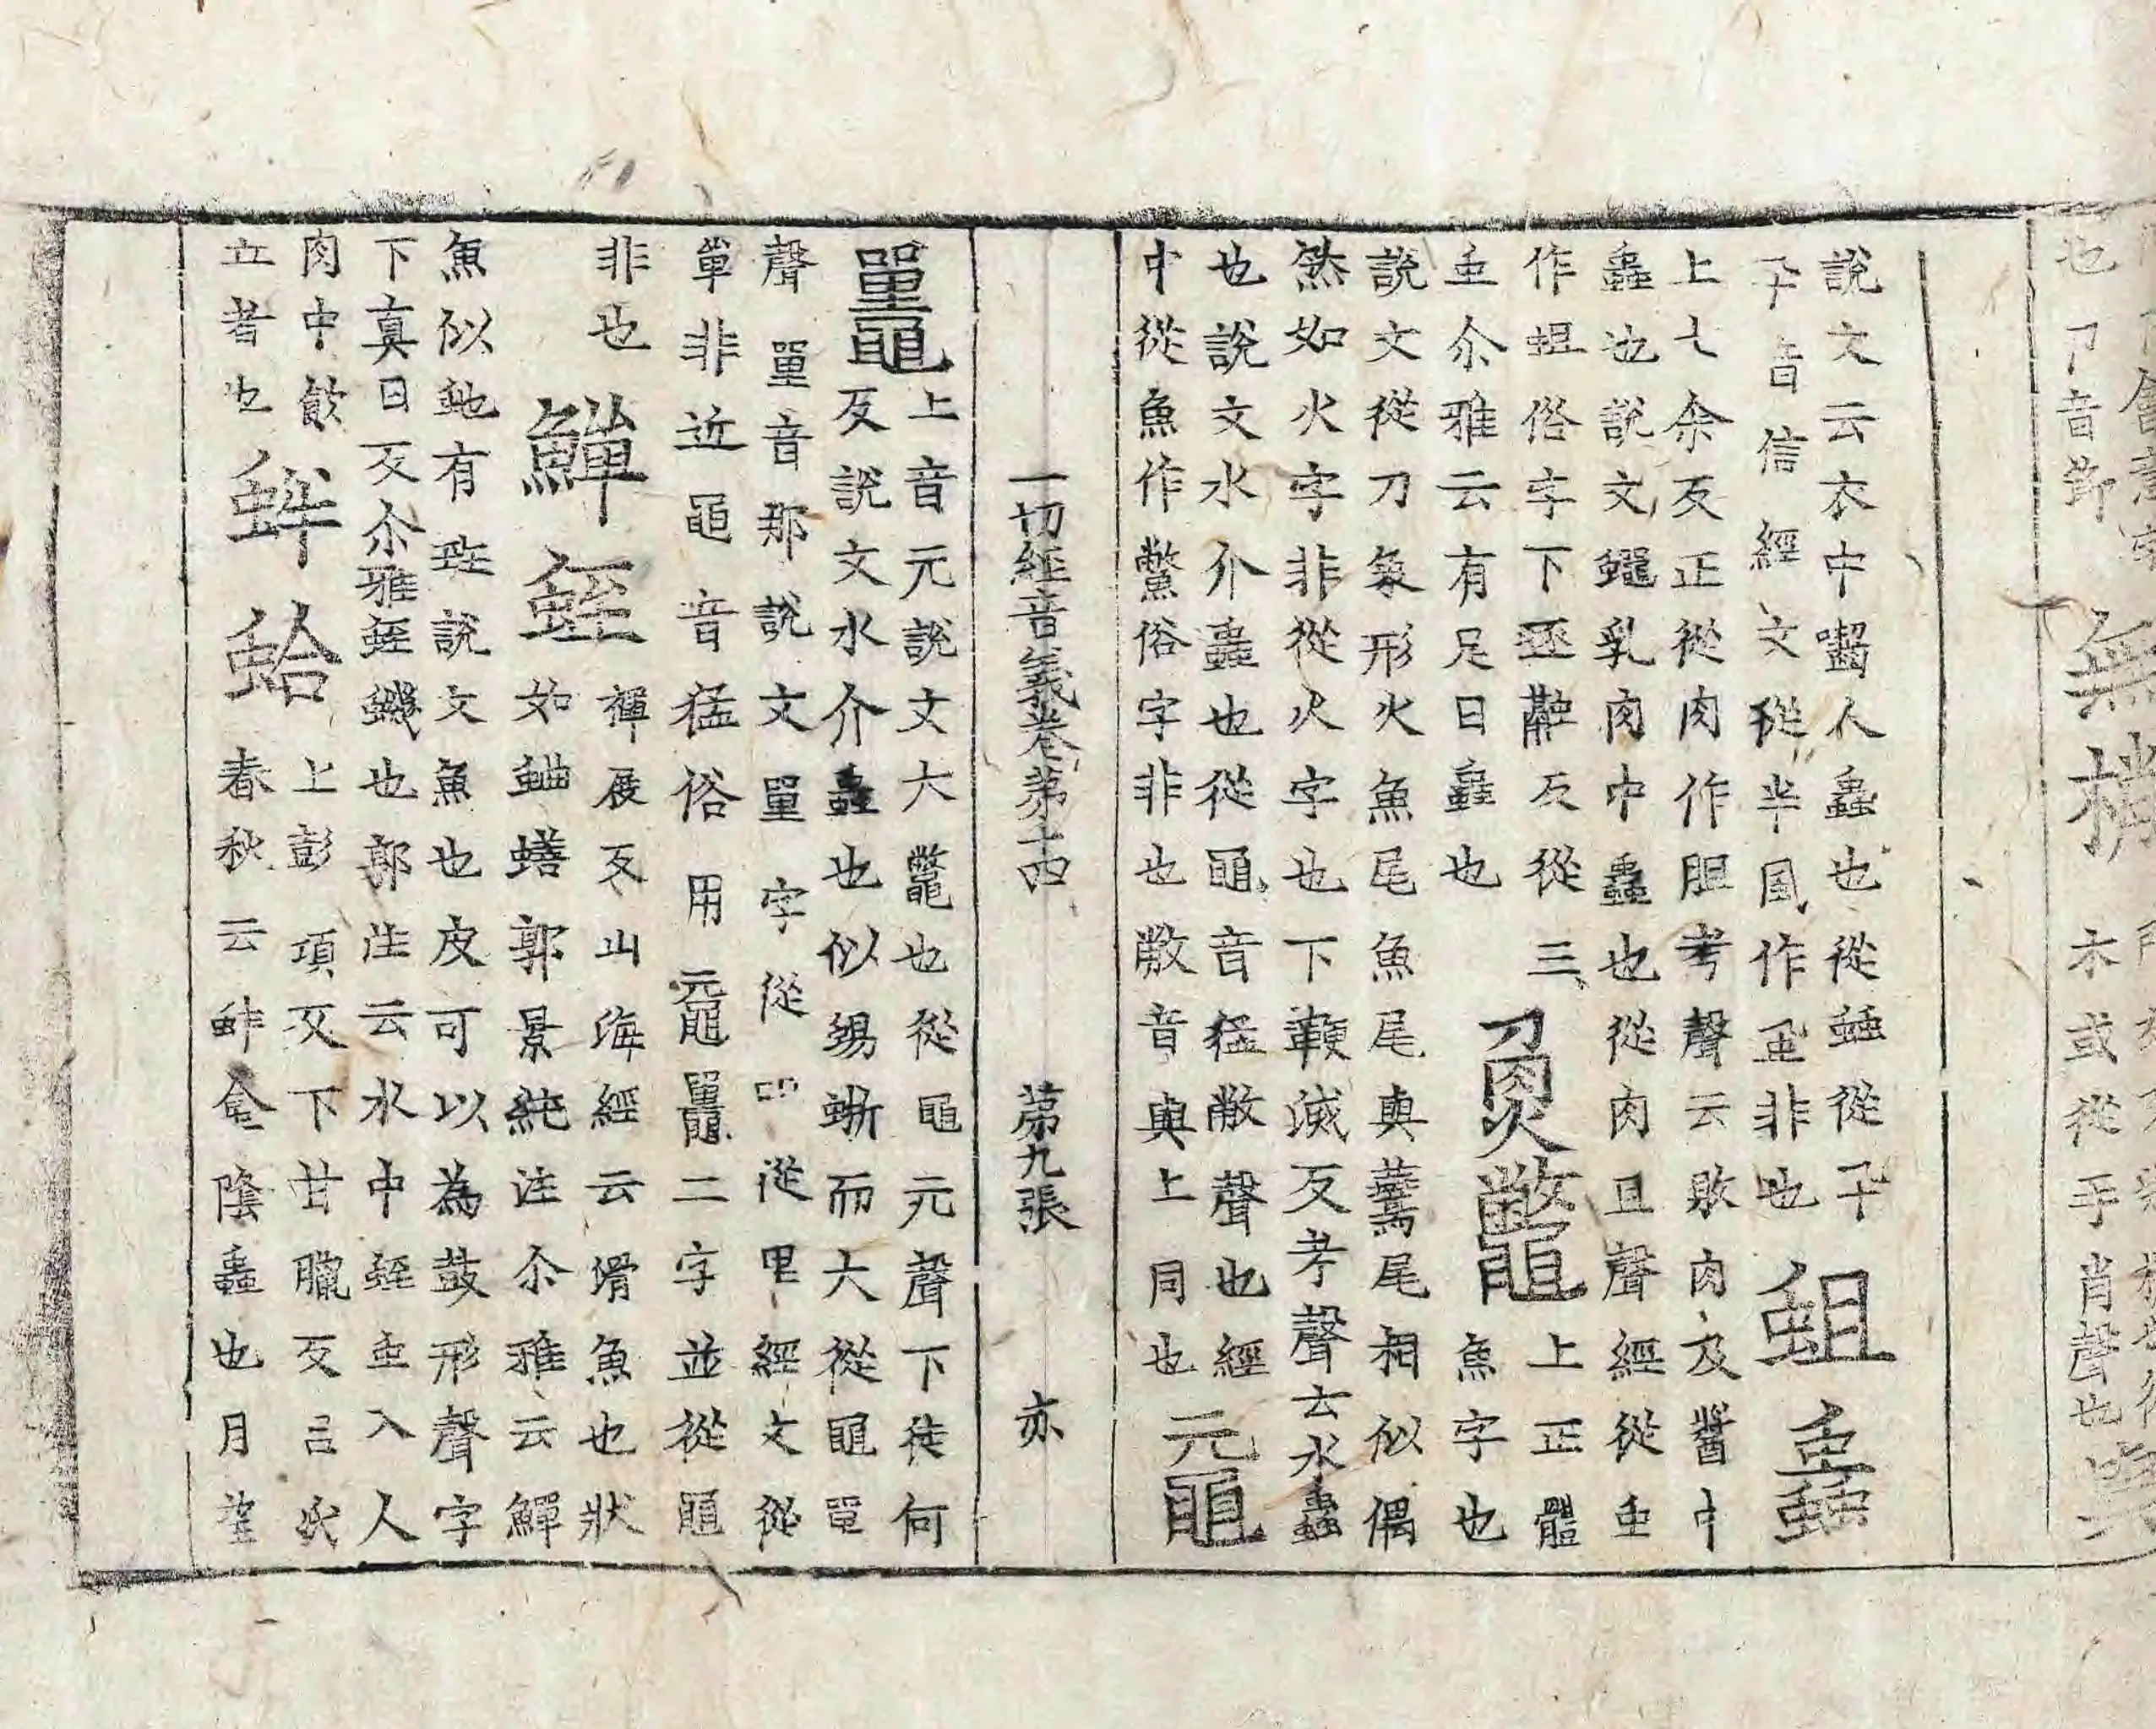 說文云衣中齧人蟲也從䖵從卂
卂音信經文從半風作虱非也蛆蟲
上七余反正從肉作胆考聲云敗肉及醬中
蟲也說文蠅乳肉中蟲也從肉且聲經從虫
作蛆俗字下逐融反從三
虫尒雅云有足曰蟲也
𤋳鼈上正體
魚字也
說文從刀象形火魚尾魚尾與鷰尾相似偶
然如火字非從火字也下鞭滅反考聲云水蟲
也說文水介蟲也從黽音猛敝聲也經
中從魚作鱉俗字非也敝音與上同也
黿
一切經音義卷第十四 第九張 亦
鼉上音元說文大鼈也從黽元聲下徒何
反說文水介蟲也似蜴蜥而大從黽單
聲單音那說文單字從吅從里經文從
單非近黽音猛俗用黿鼉二字並從龜
非也
鱓蛭禪展反山海經云滑魚也狀
如䱇鱔郭景純注尒雅云鱓
魚似虵有斑說文魚也皮可以為鼓形聲字
下真日反尒雅蛭蟣也郭注云水中蛭虫入人
肉中飲
立者也
蜯蛤上彭項反下甘臘反呂氏
春秋云蚌蛤陰蟲也月望
無
木或從手肖聲也